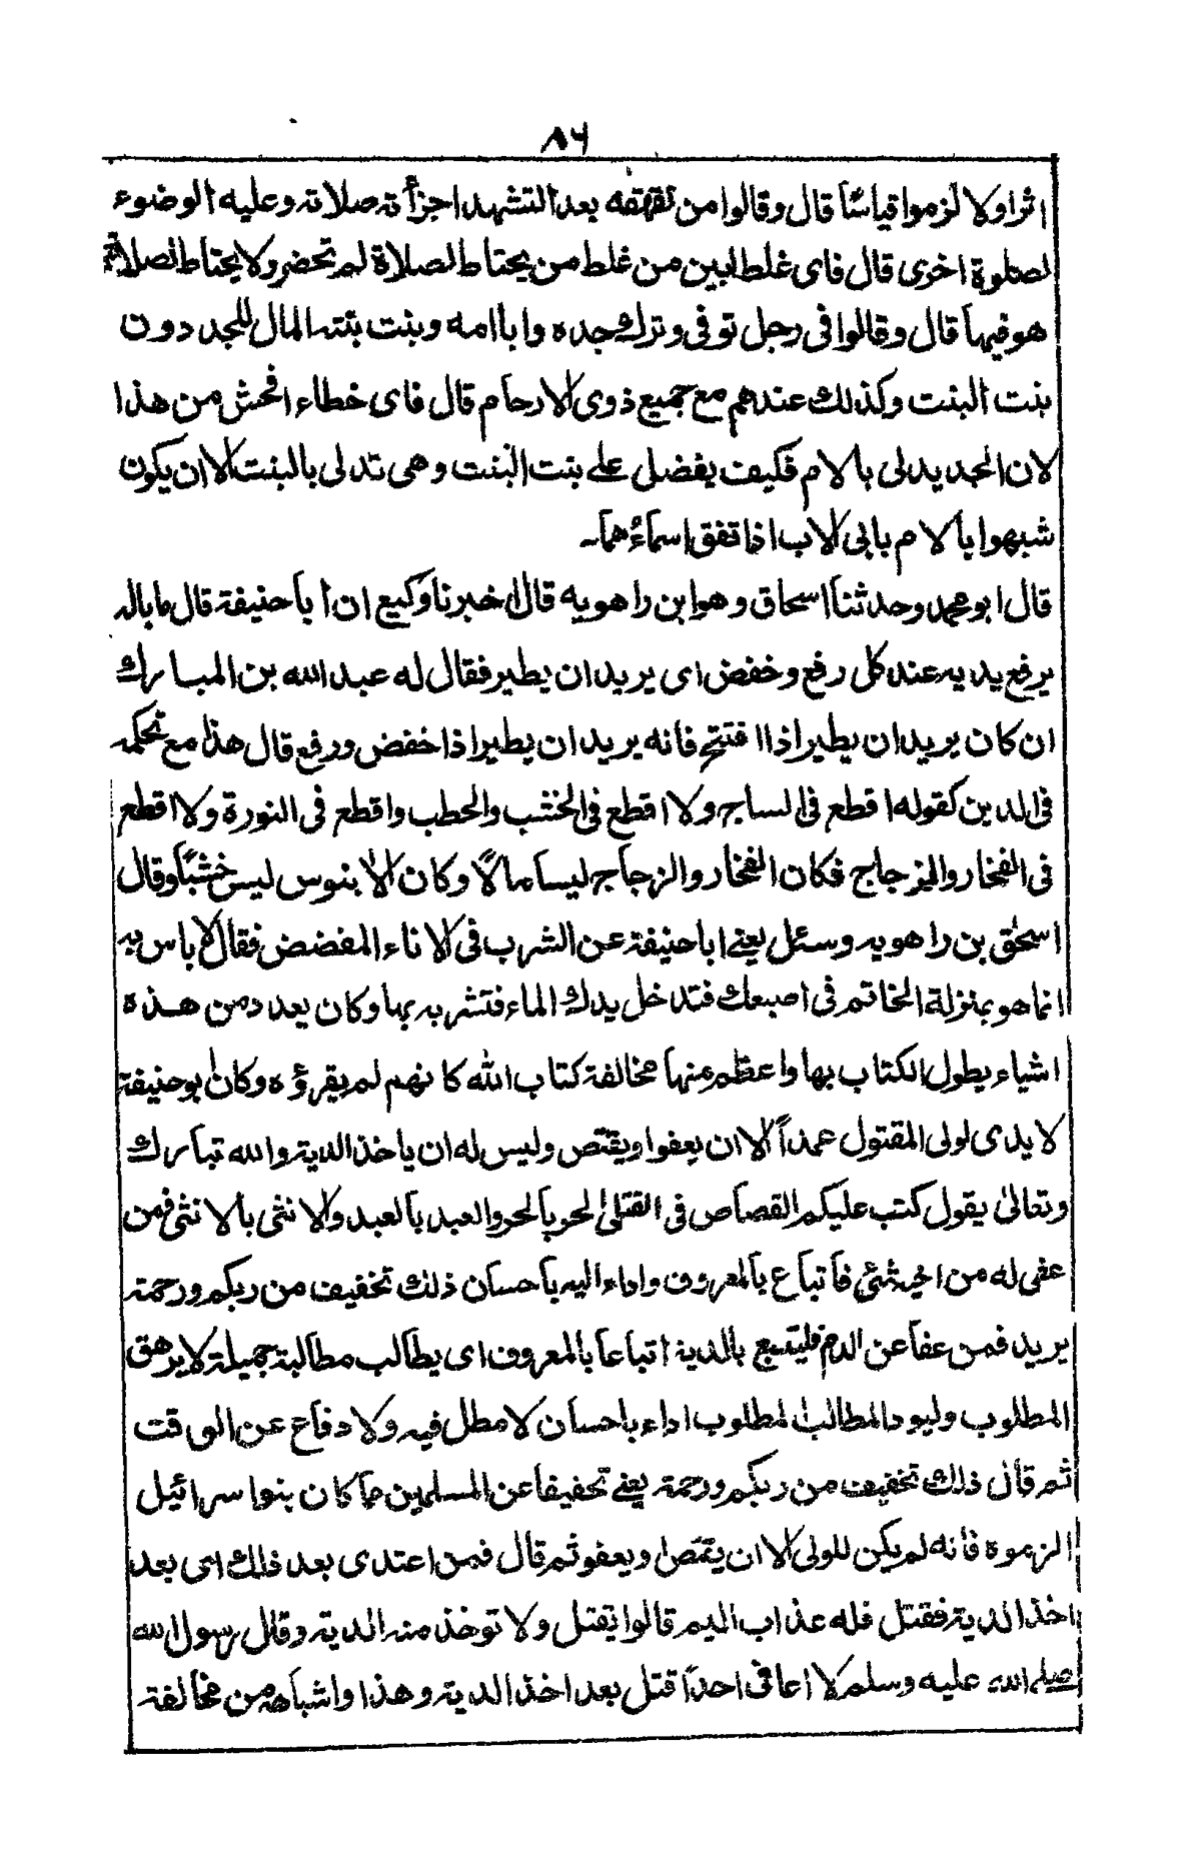 ٨٦
اثرا ولا لزموا قياسًا قال وقالوا من تقهقه بعد التشهد اجزأته صلاته وعليه الوضوء
لصلوة اخرى قال فاى غلط ابين من غلط من يحتاط لصلاة لم تحضر ولا يحتاط لصلاة
هو فيها قال وقالوا فى رجل توفى وترك جده وابا امه وبنت بنته المال للجد دون
بنت البنت وكذلك عندهم مع جميع ذوى الارحام قال فاى خطاء افحش من هذا
لان الجد يدلى بالام فكيف يفضل على بنت البنت وهى تدلى بالبنت الا ان يكون
شبهوا بالام بابى الاب اذا تفق اسماؤهما۔
قال ابو محمد وحدثنا اسحاق وهو ابن راهويه قال اخبرنا وكيع ان أبا حنيفة قال ما باله
يرفع يديه عند كل رفع وخفض اى يريد ان يطير فقال له عبد الله بن المبارك
ان كان يريد ان يطير اذا افتتح فانه يريد ان يطير اذا خفض ورفع قال هذا مع تحكمه
فى الدين كقوله اقطع فى الساج ولا اقطع فى الخشب والحطب واقطع فى النورة ولا اقطع
فى الفخار والزجاج فكان الفخار والزجاج ليسا مالاً وكان الابنوس ليس خشبًا وقال
اسحٰق بن راهويه وسئل يعنى ابا حنيفة عن الشرب فى الاناء المفضض فقال لا باس به
انما هو بمنزلة الخاتم فى اصبعك فتدخل يدك الماء فتشربه بها وكان يعدد من هذه
اشياء يطول الكتاب بها واعظم منها مخالفة كتاب الله كانهم لم يقرؤه وكان ابو حنيفة
لا يدى لولى المقتول عمداً الا ان يعفوا ويقتص وليس له ان ياخذ الدية والله تبارك
وتعالىٰ يقول كتب عليكم القصاص فى القتلىٰ الحر بالحر والعبد بالعبد والانثى بالانثى فمن
عفى له من اخيه شئ فاتباع بالمعروف واداء اليه باحسان ذلك تخفيف من ربكم ورحمة
يريد فمن عفا عن الدم فليتبع بالدية اتباعا بالمعروف اى يطالب مطالبة جميلة لا يرهق
المطلوب وليود المطالب المطلوب اداء باحسان لا مطل فيه ولا دفاع عن الوقت
ثم قال ذلك تخفيف من ربكم ورحمة يعنى تخفيفا عن المسلمين مما كان بنوا سرائيل
الزموه فانه لم يكن للولى الا ان يقتص او يعفو ثم قال فمن اعتدى بعد ذلك اى بعد
اخذ الدية فقتل فله عذاب اليم قالوا يقتل ولا توخذ منه الدية وقال رسول الله
صلى الله عليه وسلم لا اعافى احداً قتل بعد اخذ الدية وهذا واشباهه من مخالفة